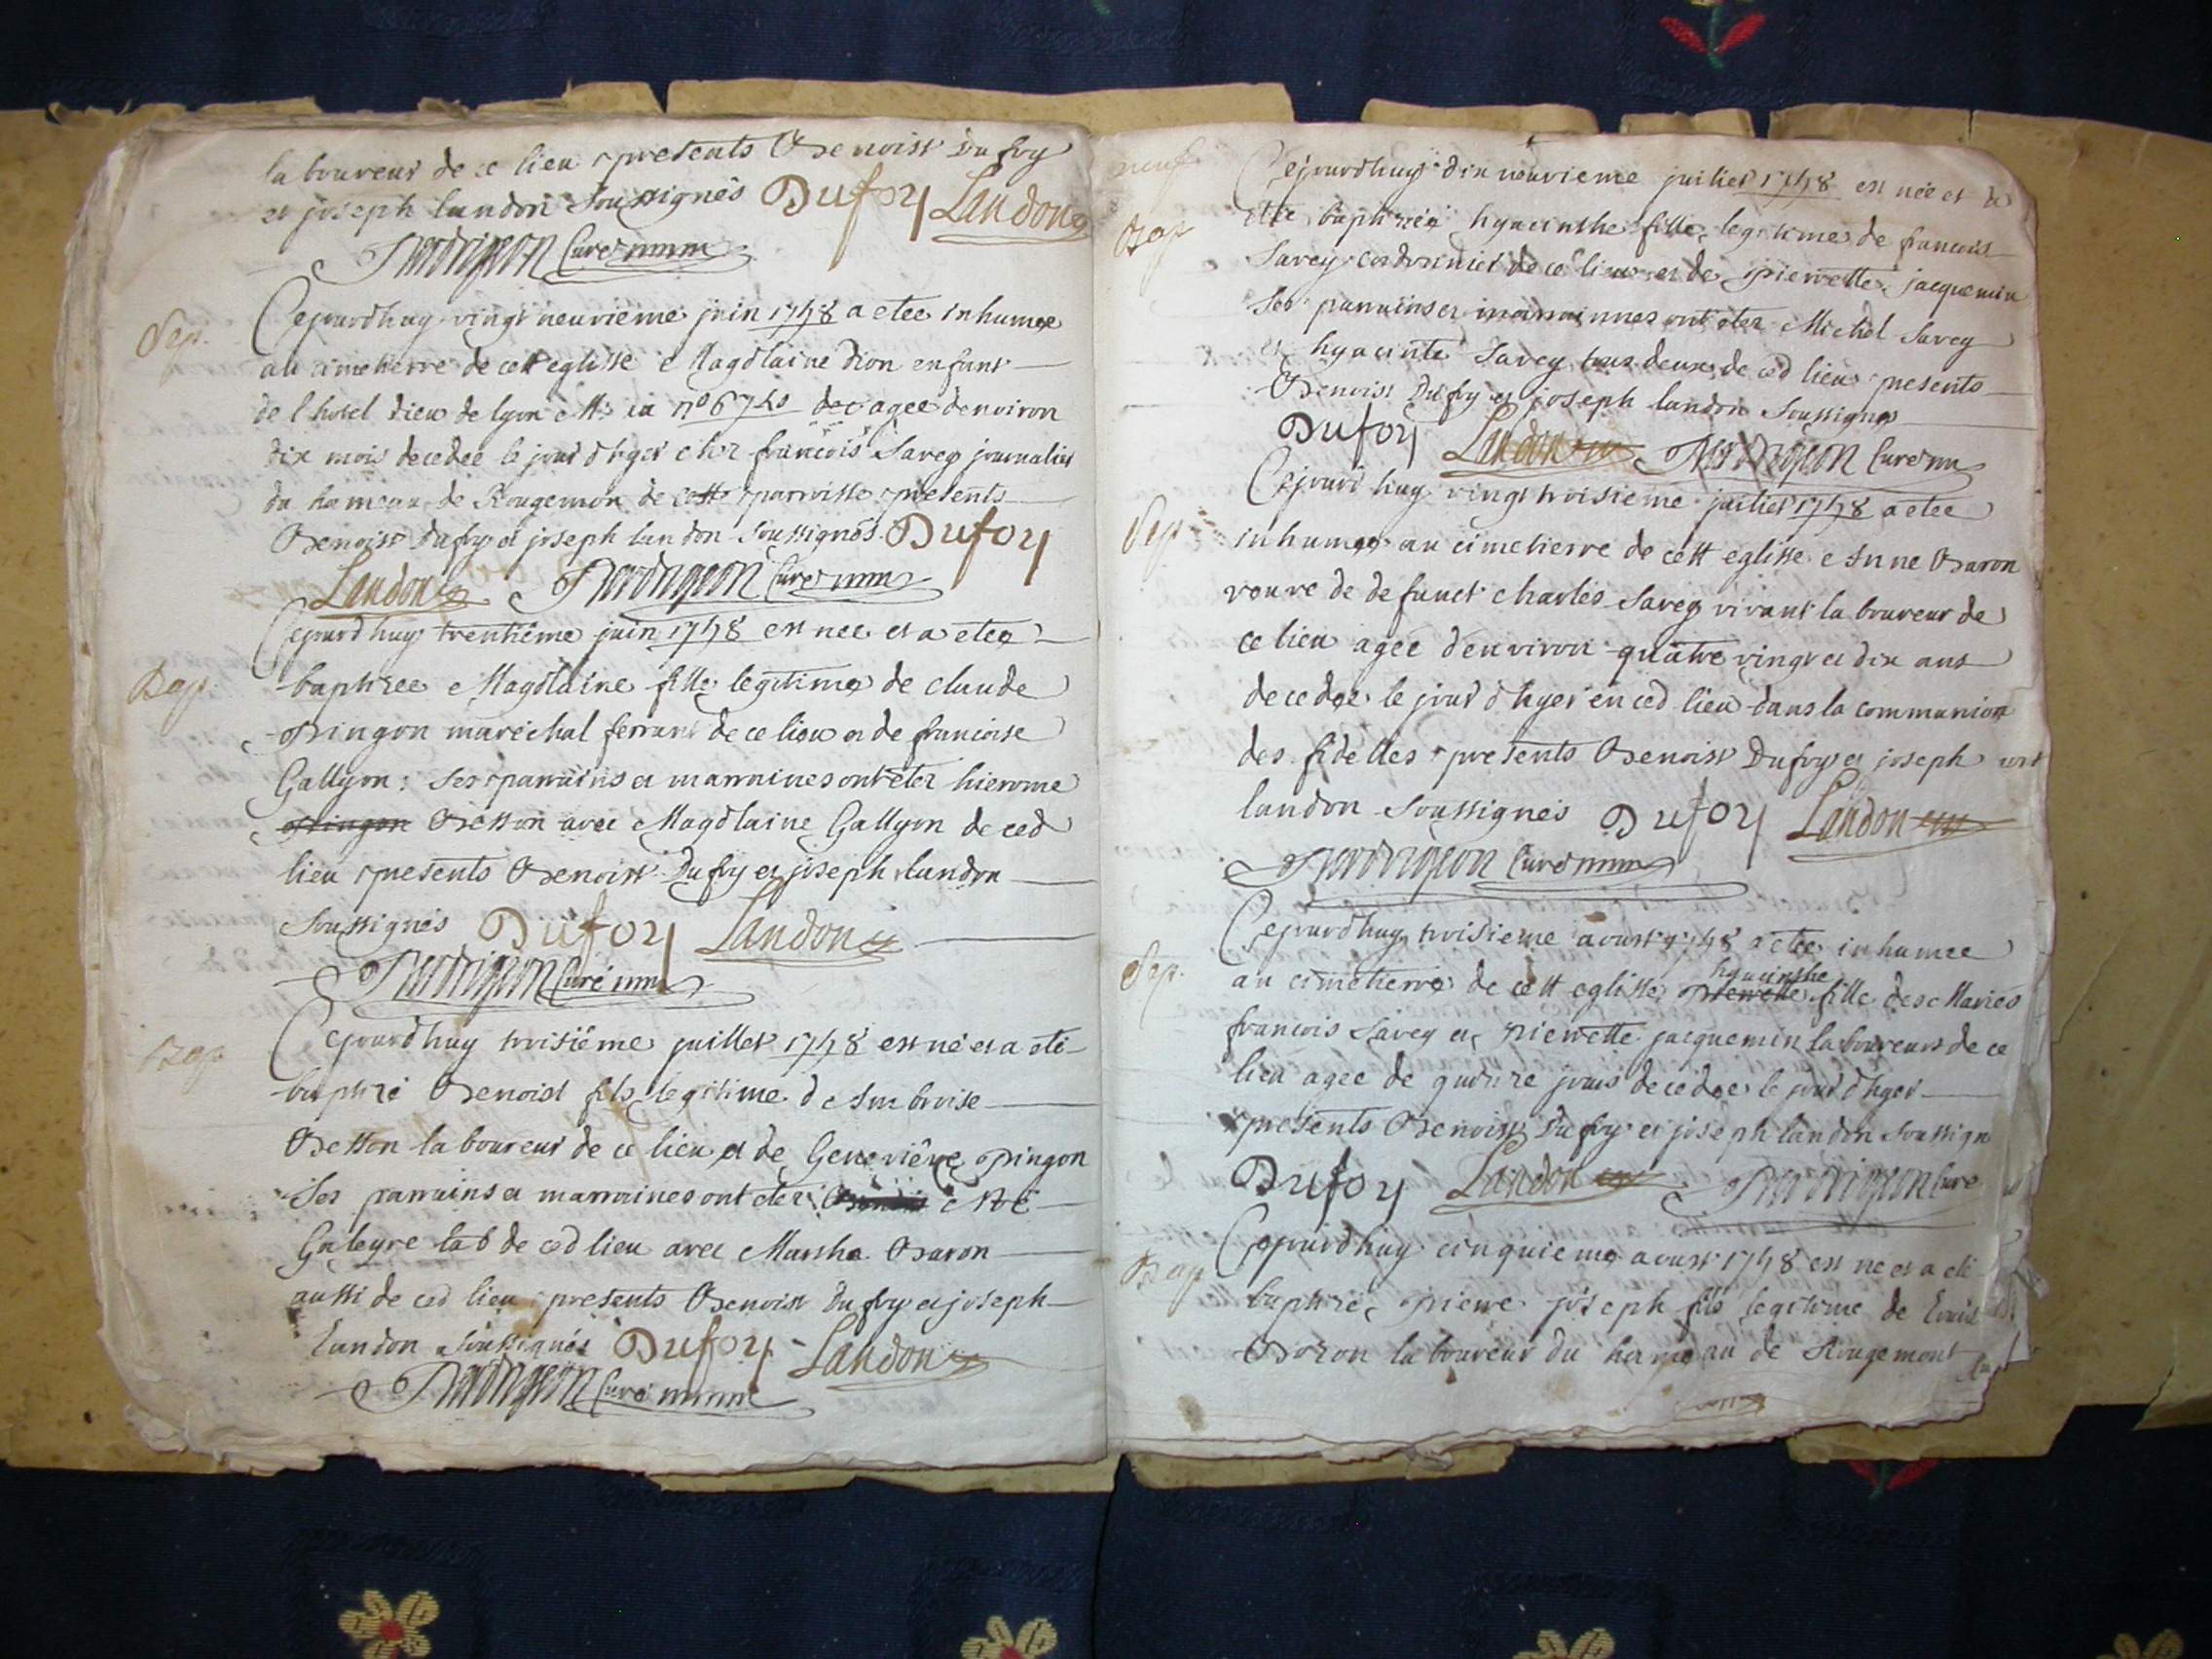 laboureur de ce lieu presents Benoist Dufoy
et joseph landon soussignés Dufoy Landon
curé
Sep.
Cejourdhuy vingt neuvieme juin 1748 a etee inhumee
au cimetierre de cett eglisse Magdlaine Dion enfant
de l'hotel Dieu de lyon agee denviron
dix mois decedee le jour d'hyer chez francois Savey journalier
du hameau de Rougemon de cette parroisse presents
Benoist Dufoy et joseph landon soussignés Dufoy
Landon curé
Bap.
Cejourdhuy trentiême juin 1748 est nee et a etee
baptizee Magdlaine fille legitime de claude
Pingon maréchal ferrant de ce lieu et de francoise
Gallyon: ses parrains et marraines ont eter hierome
Pingon Besson avec Magdlaine Gallyon de ced
lieu presents Benoist Dufoy et joseph landon
soussignés Dufoy Landon
curé
Bap
Cejourdhuy troisiême juillet 1748 est né et a eté
baptizé Benoist fils legitime d'Ambroise
Besson laboureur de ce lieu et de Geneviêve Pingon
ses parrains et marraines ont eter
Galeyre lab de ced lieu avec Marthe Baron
aussi de ced lieu presents Benoist Dufoy et joseph
landon soussignés Dufoy Landon
curé
neuf
Cejourdhuy dix neuvieme juillet 1748 est née et a
Bap
etée baptizée hyacinthe fille legitime de francois
Savey cordonnier de ce lieu et de pierrette jacquemin
ses parrains et marrainnes ont eter Michel Savey
et hyacinte Savey tous deux de ced lieu presents
Benoist Dufoy et joseph landon soussignes
Dufoy Landon curé
Cejourdhuy vingt troisieme juillet 1748 a etee
Sep
inhumee au cimetierre de cett eglisse Anne Baron
vouve de defunct charles Savey vivant laboureur de
ce lieu agée denviron quâtre vingt et dix ans
decedee le jour d'hyer en ced lieu dans la communion
des fidelles presents Benoist Dufoy et joseph
landon soussignés Dufoy Landon
curé
Cejourdhuy troisieme avoust 1748 a etee inhumee
Sep.
hyacinthe
au cimetierre de cett eglisse Pierrette fille des Mariés
francois Savey et pierrette jacquemin laboureurs de ce
lieu agee de quinze jours decedee le jour d'hyer
presents Benoist Dufoy et joseph landon soussign
Dufoy Landon curé
Cejourdhuy cinquieme avoust 1748 est né et a eté
Bap
baptizé pierre joseph fils legitime de Louis
Bozon laboureur du hameau de Rougemont